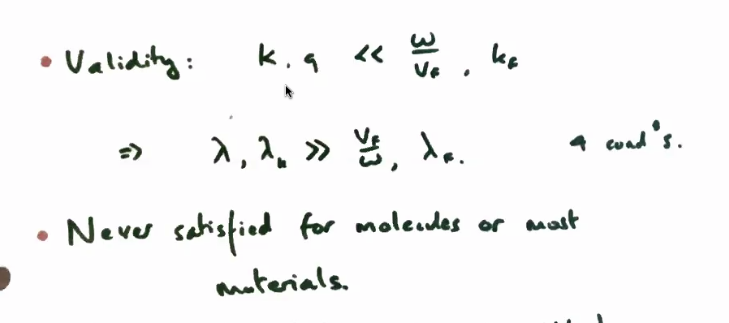 • Validity: k, q << ω/v_F, k_F
⇒ λ, λ_n >> v_F/ω, λ_F. 4 cond's.
• Never satisfied for molecules or most
materials.